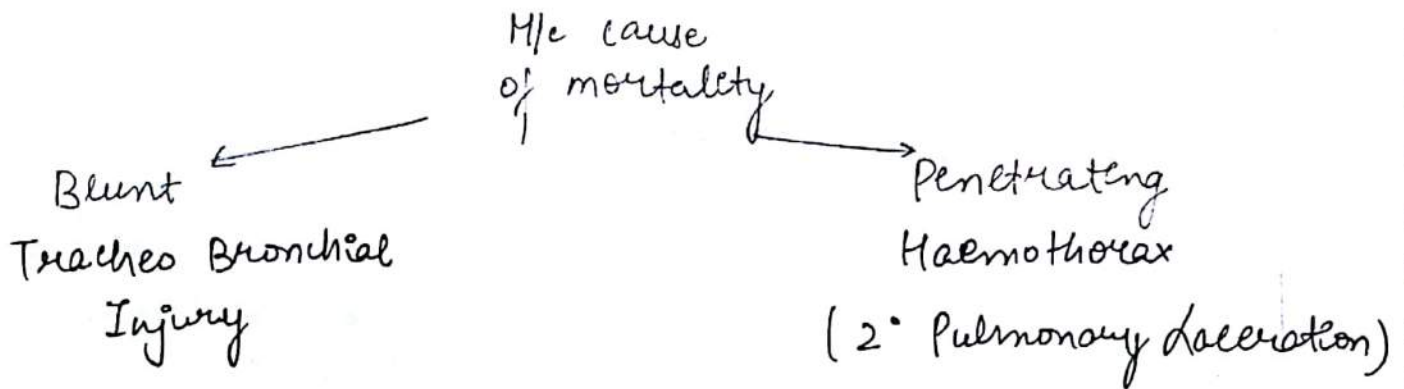 M/c cause
of mortality
Blunt
Tracheo Bronchial
Injury
Penetrating
Haemothorax
(2° Pulmonary Laceration)